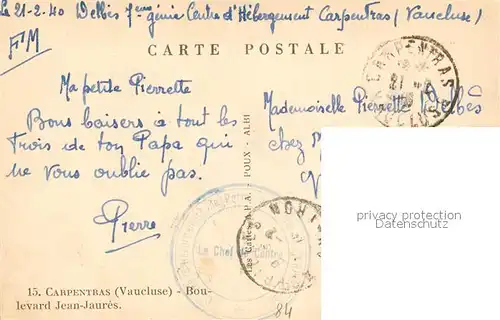 Le 21-2-40 Delbès 7ème génie Centre d'Hébergement Carpentras (Vaucluse)
FM
CARTE POSTALE
CARPENTRAS
VAUCLUSE
Ma petite Pierrette
Mademoiselle Pierrette Delbès
Bons baisers à tout les
chez M
trois de ton Papa qui
ne vous oublie pas.
Pierre
POUX - ALBI
privacy protection
watermark
Le Chef de Centre
15. CARPENTRAS (Vaucluse) - Bou-
levard Jean-Jaurès.
84